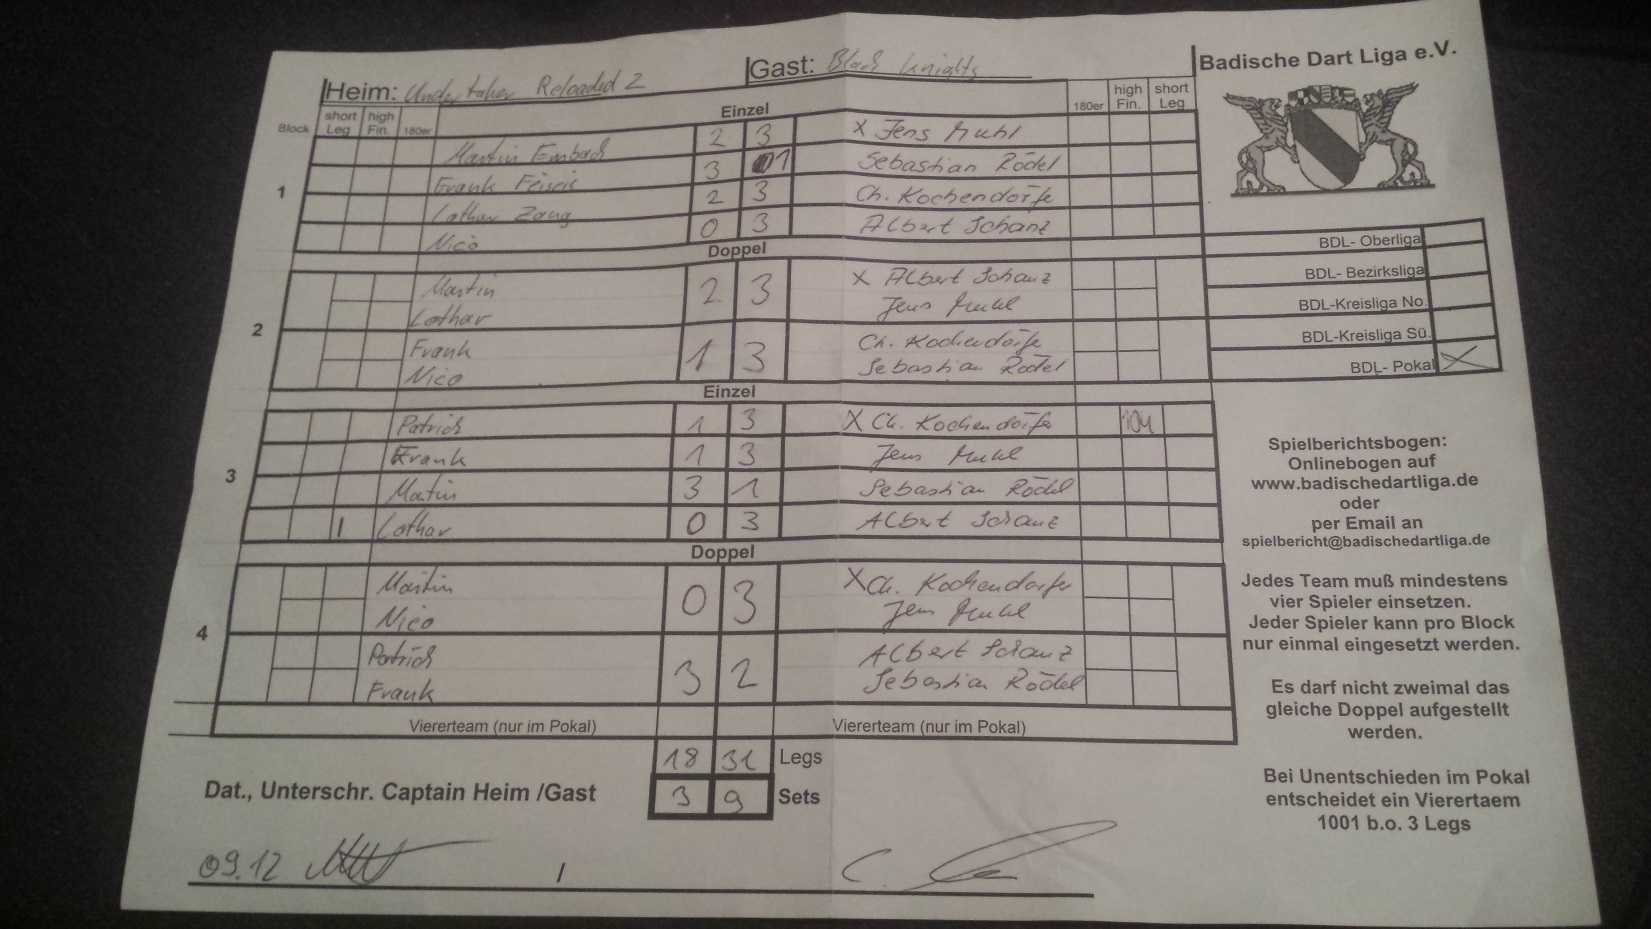 Heim: Undertaker Reloaded 2 Gast: Black Knights Badische Dart Liga e.V.
Block short Leg high Fin. 180er Einzel 180er high Fin. short Leg
1
Martin Embach 2 3 X Jens Muhl
Frank 3 1 Sebastian Rödel
Lothar Zaug 2 3 Ch. Kochendörfe
Nico 0 3 Albert Schanz
Doppel
2
Martin 2 3 X Albert Schanz
Lothar Jens Muhl
Frank 1 3 Ch. Kochendörfe
Nico Sebastian Rödel
Einzel
3
Patrick 1 3 X Ch. Kochendörfe 104
Frank 1 3 Jens Muhl
Martin 3 1 Sebastian Rödel
1 Lothar 0 3 Albert Schanz
Doppel
4
Martin 0 3 X Ch. Kochendörfer
Nico Jens Muhl
Patrick 3 2 Albert Schanz
Frank Sebastian Rödel
Viererteam (nur im Pokal) Viererteam (nur im Pokal)
18 31 Legs
Dat., Unterschr. Captain Heim /Gast 3 9 Sets
09.12 /
BDL- Oberliga
BDL- Bezirksliga
BDL-Kreisliga No.
BDL-Kreisliga Sü.
BDL- Pokal X
Spielberichtsbogen:
Onlinebogen auf
www.badischedartliga.de
oder
per Email an
spielbericht@badischedartliga.de
Jedes Team muß mindestens
vier Spieler einsetzen.
Jeder Spieler kann pro Block
nur einmal eingesetzt werden.
Es darf nicht zweimal das
gleiche Doppel aufgestellt
werden.
Bei Unentschieden im Pokal
entscheidet ein Vierertaem
1001 b.o. 3 Legs